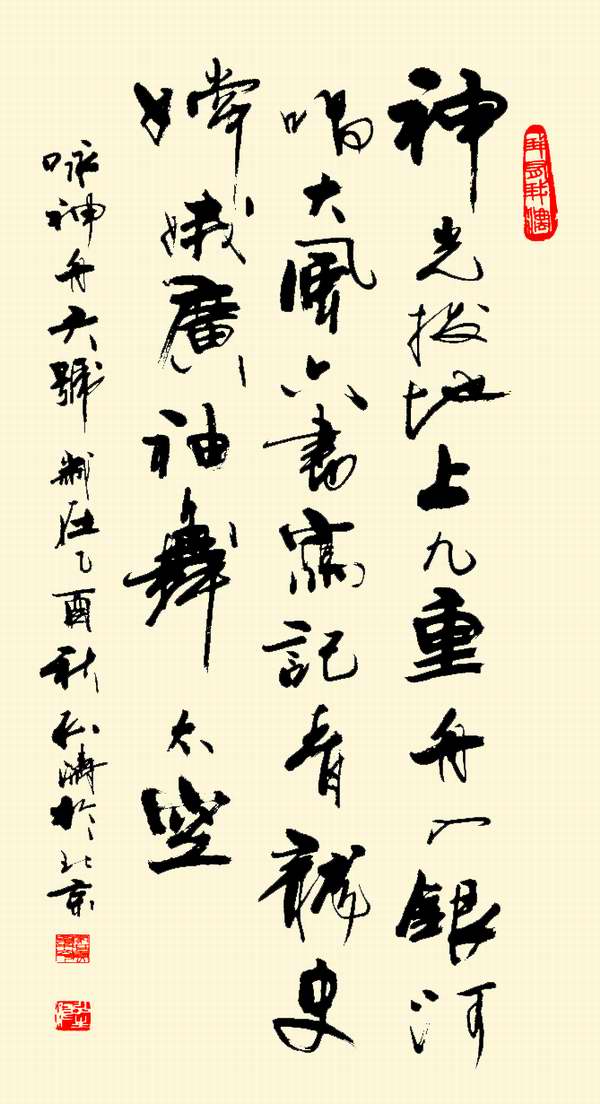 神光拔地上九重舟入銀河
唱大風六書寫記青史
嫦娥廣袖舞太空
咏神舟六號 乙酉秋濤於北京